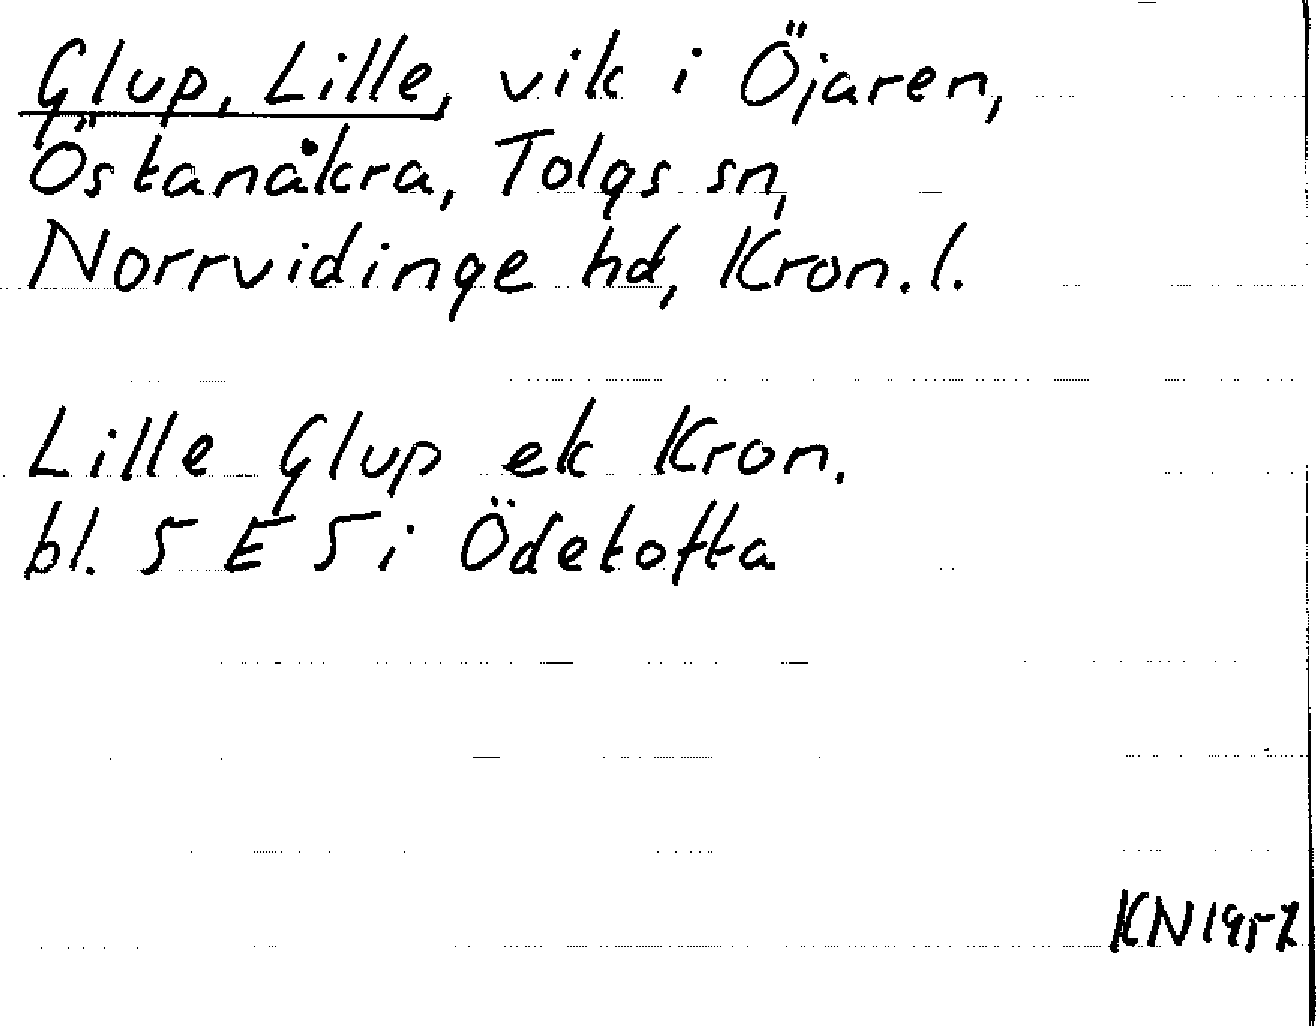 Glup, Lille, vik i Öjaren,
Östanåkra, Tolgs sn,
Norrvidinge hd, Kron. l.
Lille Glup ek Kron.
bl. 5 E 5 i Ödetofta
KN 1957